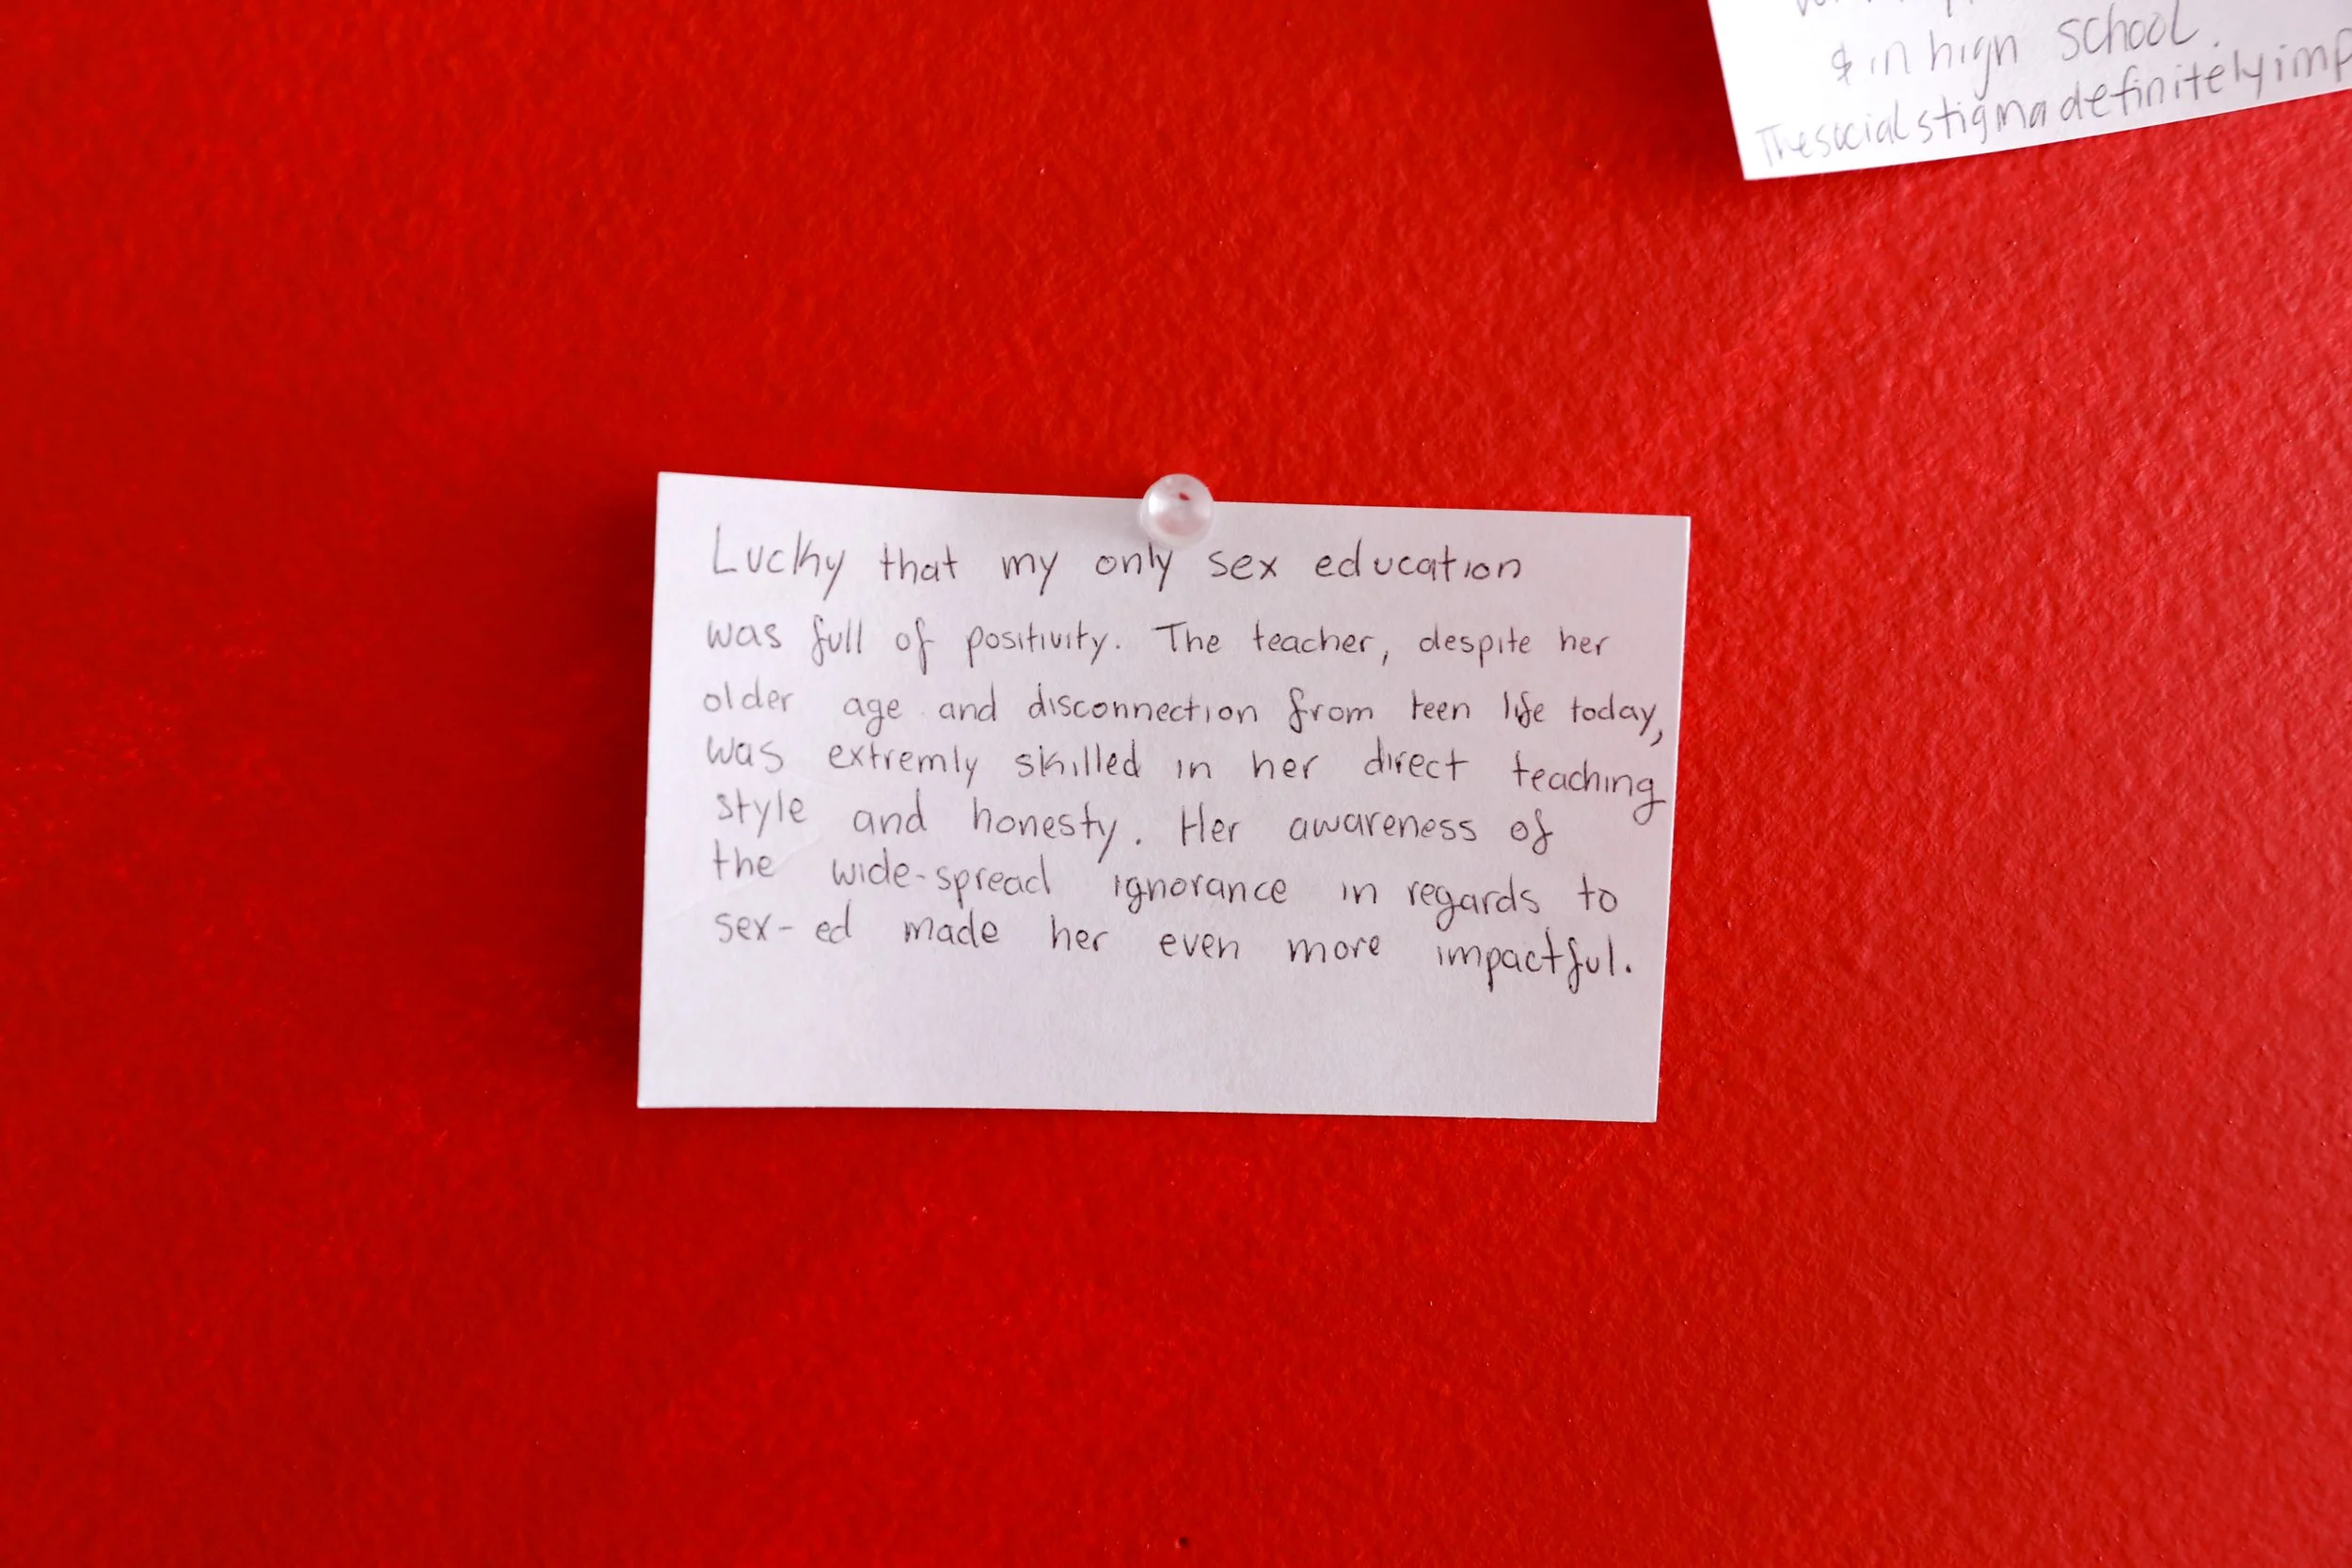 & in high school.
The social stigma definitely
Lucky that my only sex education
was full of positivity. The teacher, despite her
older age and disconnection from teen life today,
was extremly skilled in her direct teaching
style and honesty. Her awareness of
the wide-spread ignorance in regards to
sex-ed made her even more impactful.